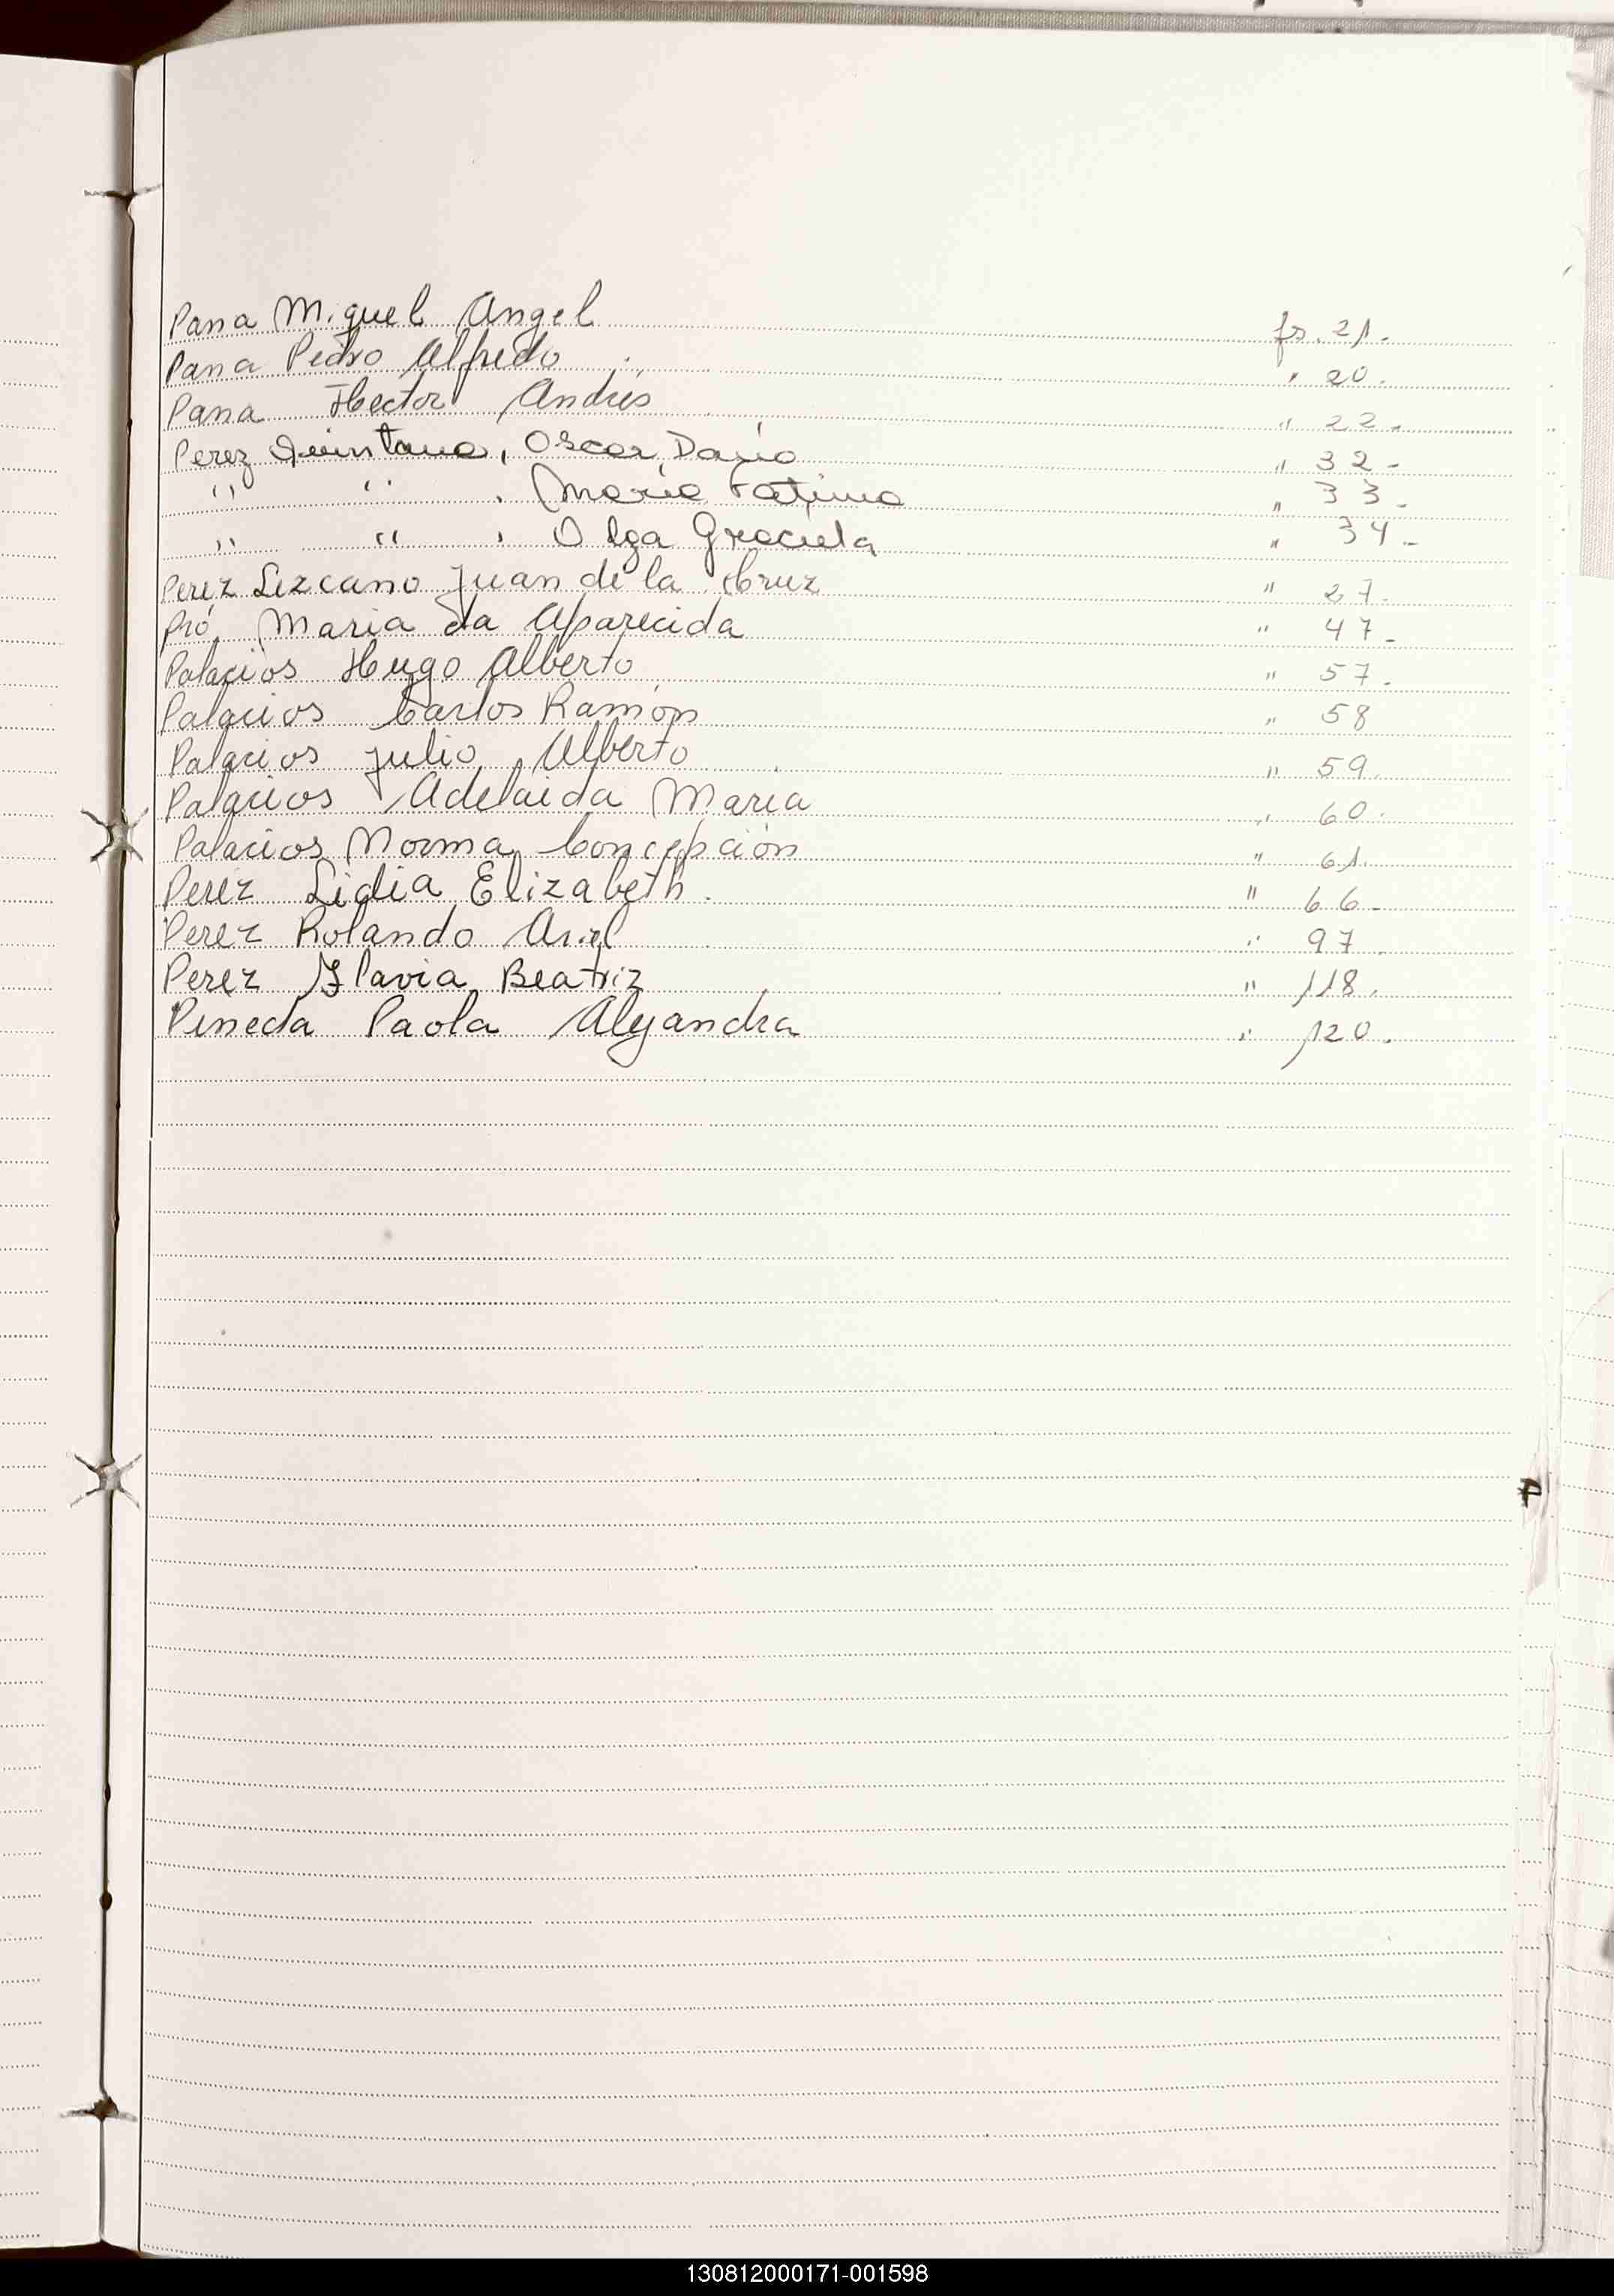 Pana Miguel Angel fs. 21.-
Pana Pedro Alfredo " 20.
Pana Hector Andrés " 22.-
Perez Quintana, Oscar Dario " 32-
" " , Maria Fatima " 33.-
" " , Olga Graciela " 34-
Perez Lezcano Juan de la Cruz " 27.
Pró, Maria da Aparecida " 47-
Palacios Hugo Alberto " 57.
Palacios Carlos Ramón " 58
Palacios Julio Alberto " 59.
Palacios Adelaida Maria " 60.
Palacios Norma Concepción " 61.
Perez Lidia Elizabeth. " 66-
Perez Rolando Ariel " 97.
Perez Flavia Beatriz " 118.
Pineda Paola Alejandra " 120.
P
130812000171-001598